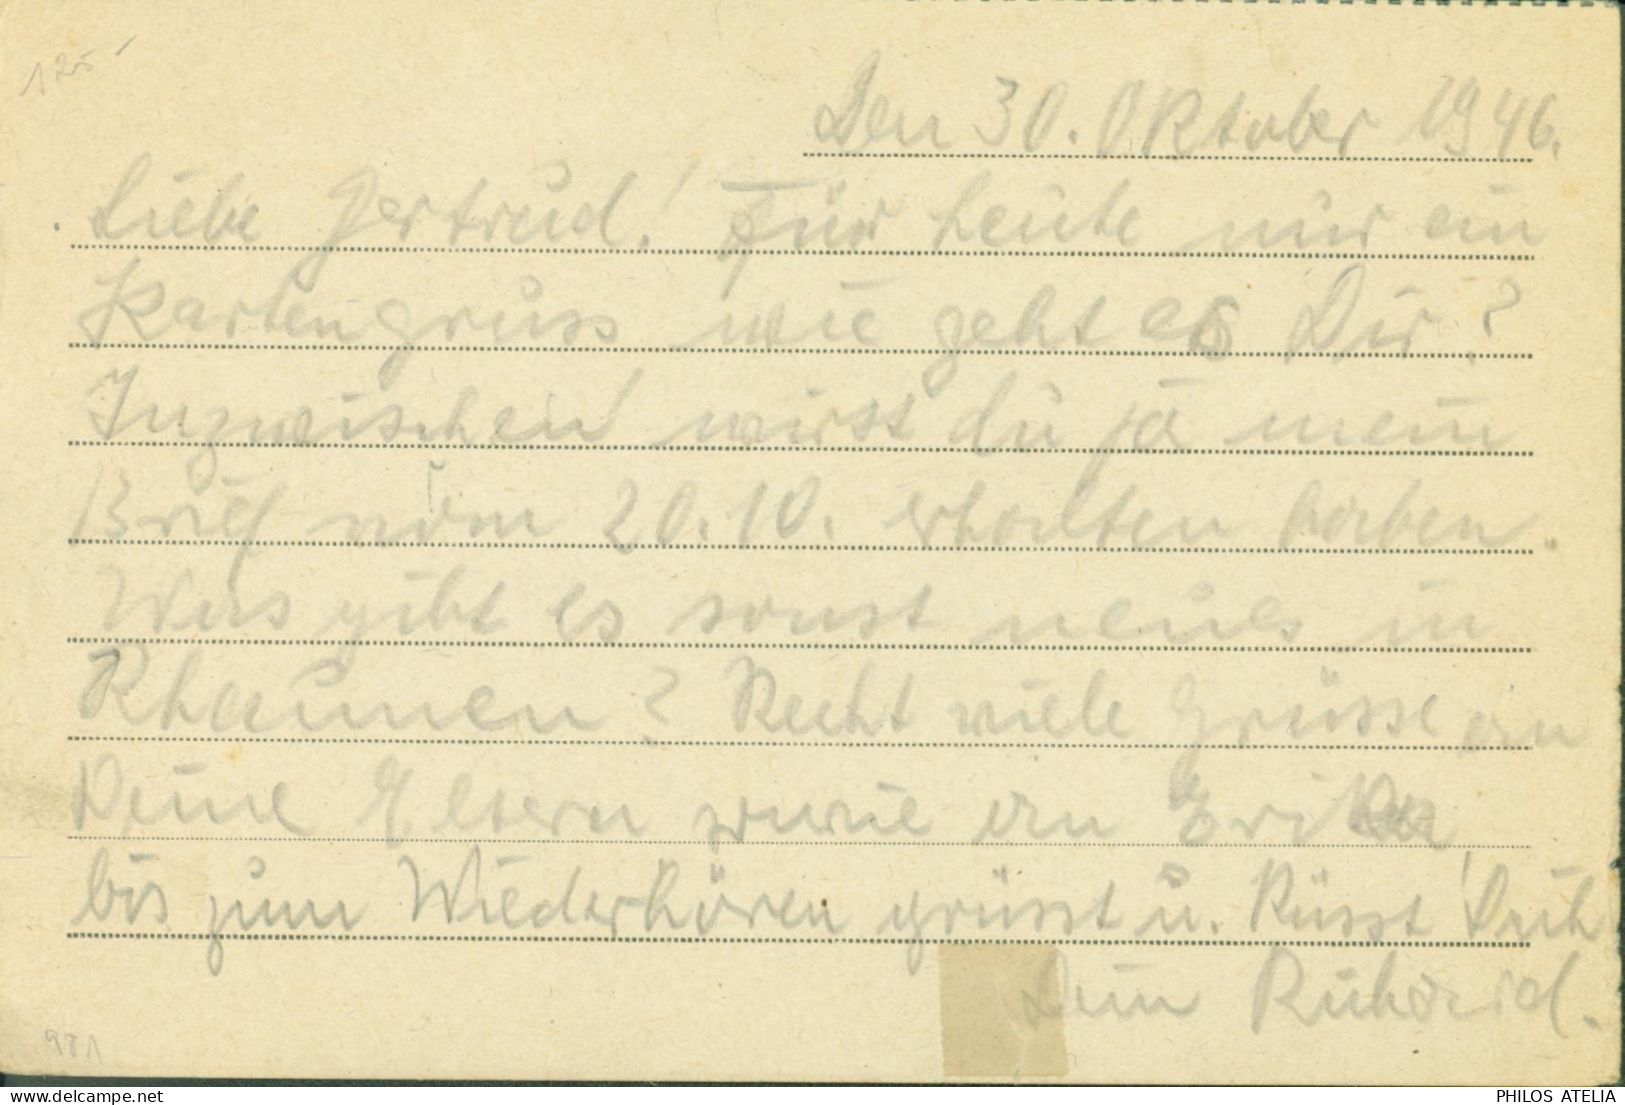 125
Den 30. Oktober 1946.
Liebe Gertrud! Für heute nur ein
Kartengruss wie geht es Dir?
Inzwischen wirst du ja mein
Brief vom 20.10. erhalten haben.
Was gibt es sonst neues in
Rhaunen? Recht viele Grüsse an
Deine Eltern sowie an
bis zum Wiederhören grüsst u. Küsst Dich
Dein Richard.
delcampe.net
PHILOS ATELIA